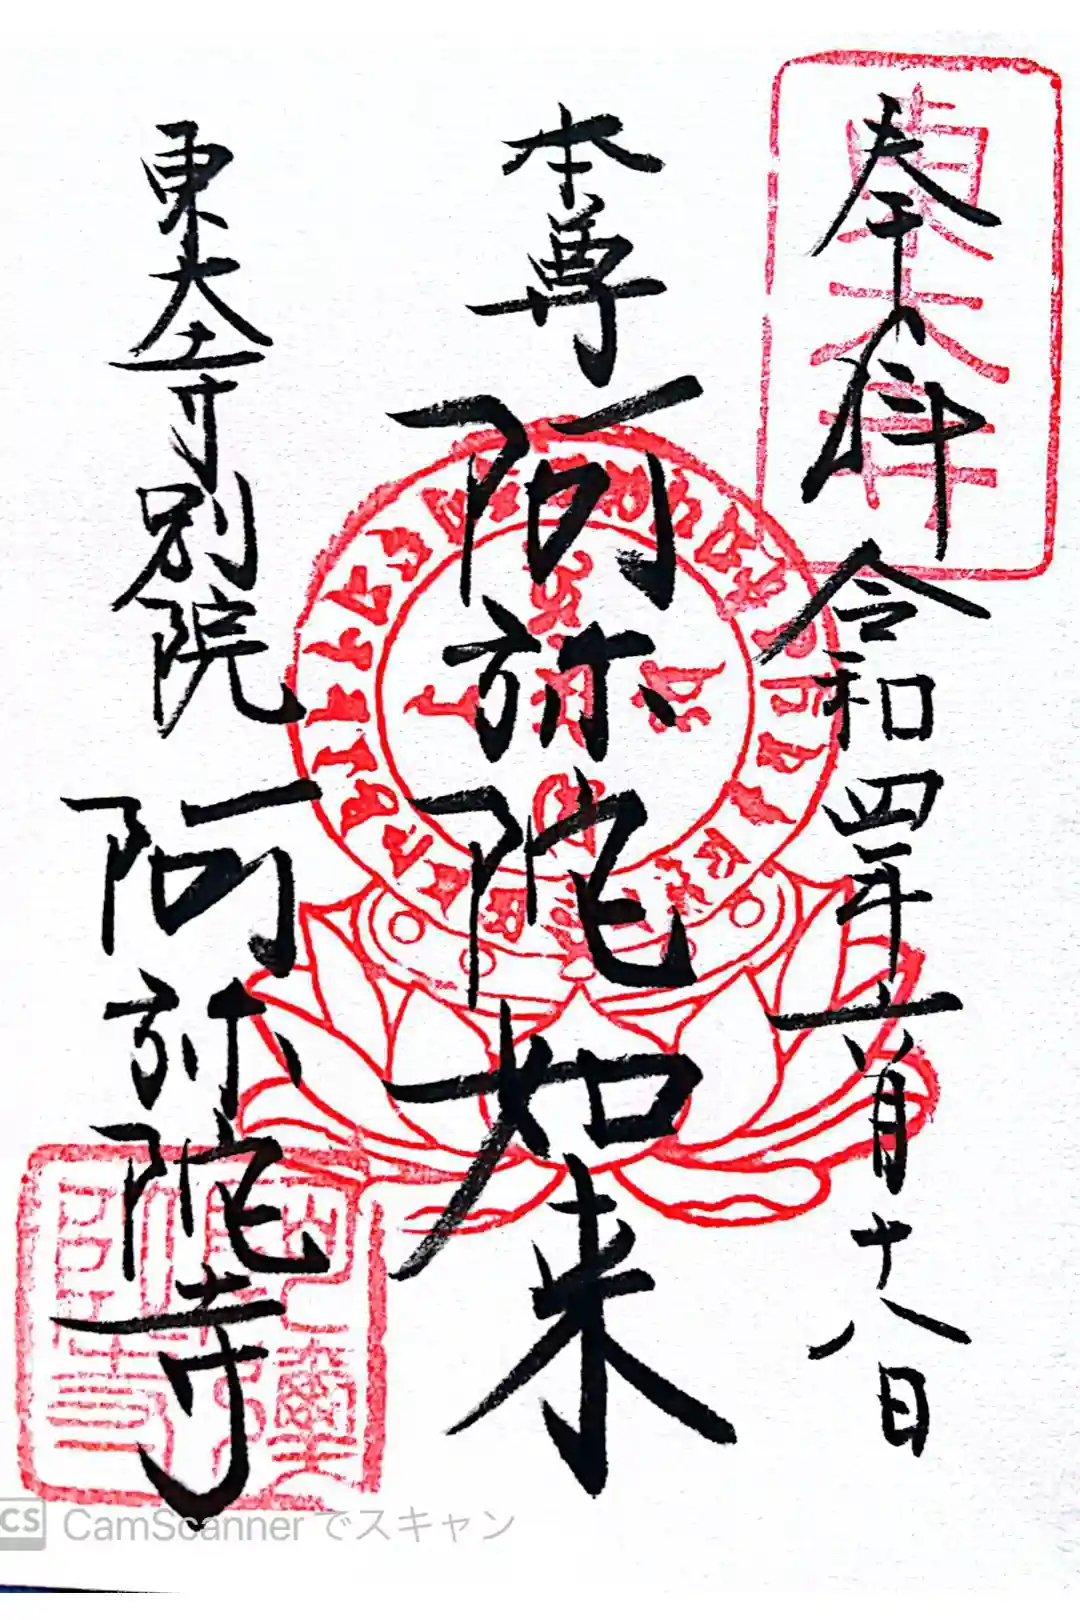 奉拝 令和四年
月十八日
本尊 阿弥陀如来
東大寺別院 阿弥陀寺
CS CamScannerでスキャン